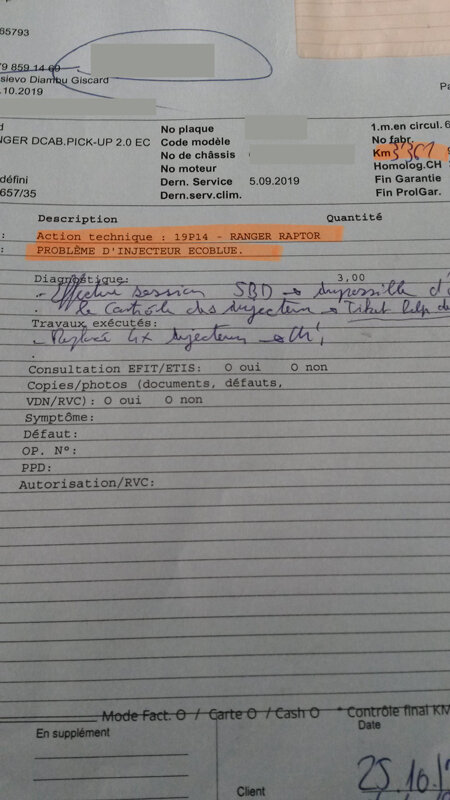 65793
79 859 14 69
sievo Diambu Giscard
.10.2019
Pa
NGER DCAB.PICK-UP 2.0 EC
No plaque
Code modèle
No de châssis
No moteur
Dern. Service 5.09.2019
Dern.serv.clim.
1.m.en circul. 6
No fabr.
Km
Homolog.CH
Fin Garantie
Fin ProlGar.
défini
657/35
Description Quantité
: Action technique : 19P14 - RANGER RAPTOR
: PROBLÈME D'INJECTEUR ECOBLUE.
Diagnostique: 3,00
- Effectué session SBD → impossible d'
le contrôle des injecteurs →
Travaux exécutés:
- Replacé 4x injecteurs →
.
Consultation EFIT/ETIS: O oui O non
Copies/photos (documents, défauts,
VDN/RVC): O oui O non
Symptôme:
Défaut:
OP. N°:
PPD:
Autorisation/RVC:
Mode Fact. O / Carte O / Cash O * Contrôle final KM
En supplément
Date
25.10.1
Client